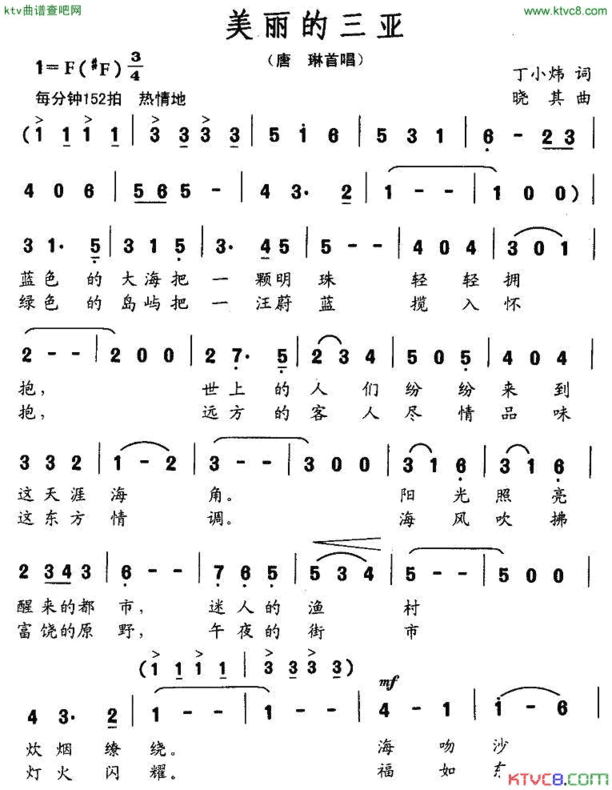 ktv曲谱查吧网 www.ktvc8.com
美丽的三亚
（唐 琳首唱）
1=F(#F) 3/4
丁小炜 词
每分钟152拍 热情地
晓 其 曲
(1 1 1 1 | 3 3 3 3 | 5 i 6 | 5 3 1 | 6 - 2 3 |
4 0 6 | 5 6 5 - | 4 3· 2 | 1 - - | 1 0 0 )|
3 1· 5 | 3 1 5 | 3· 4 5 | 5 - - | 4 0 4 | 3 0 1 |
蓝色 的 大海把 一 颗明 珠 轻 轻 拥
绿色 的 岛屿把 一 汪蔚 蓝 揽 入 怀
2 - - | 2 0 0 | 2 7· 5 | 2 3 4 | 5 0 5 | 4 0 2 |
抱， 世上 的 人 们 纷 纷 来 到
抱， 远方 的 客 人 尽 情 品 味
3 3 2 | 1 - 2 | 3 - - | 3 0 0 | 3 1 6 | 3 1 6 |
这天涯 海 角。 阳 光 照 亮
这东方 情 调。 海 风 吹 拂
2 3 4 3 | 6 - - | 7 6 5 | 5 3 4 | 5 - - | 5 0 0 |
醒来的都 市， 迷人的 渔 村
富饶的原 野， 午夜的 街 市
(1 1 1 1 | 3 3 3 3)
mf
4 3· 2 | 1 - - | 1 - - | 4 - 1 | 1 - 6 |
炊烟 缭 绕。 海 吻 沙
灯火 闪 耀。 福 如
KTVC8.COM